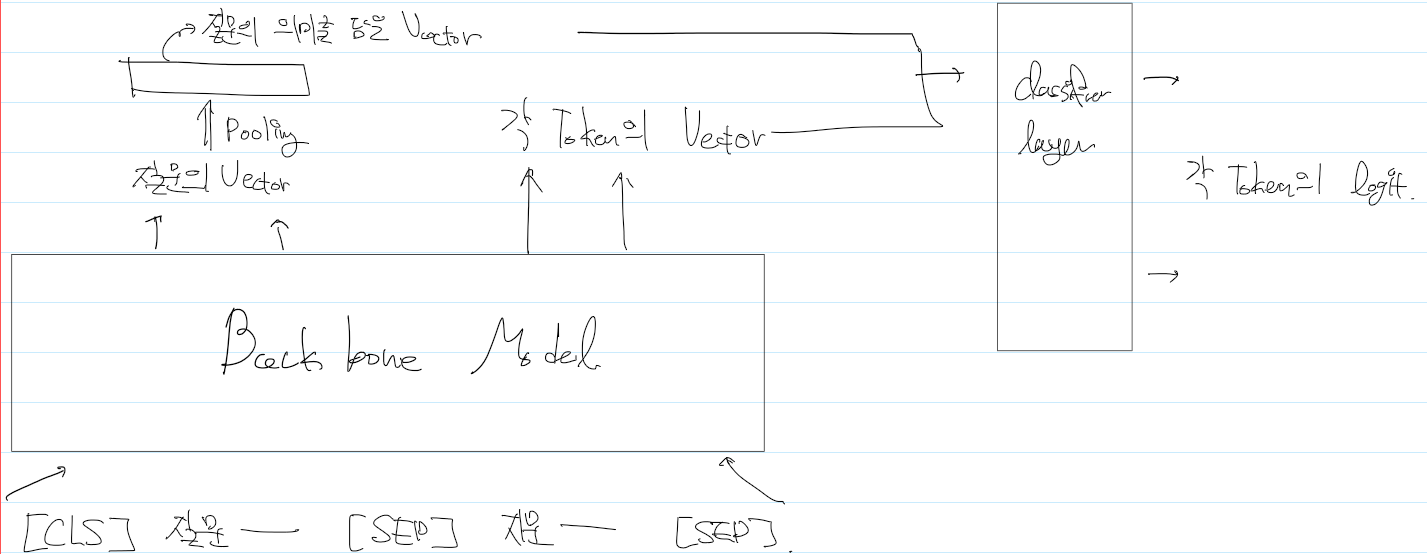 질문의 의미를 담은 Vector
Pooling
질문의 Vector
각 Token의 Vector
Classifier
layer
각 Token의 logit.
Backbone Model
[CLS] 질문 — [SEP] 지문 — [SEP].